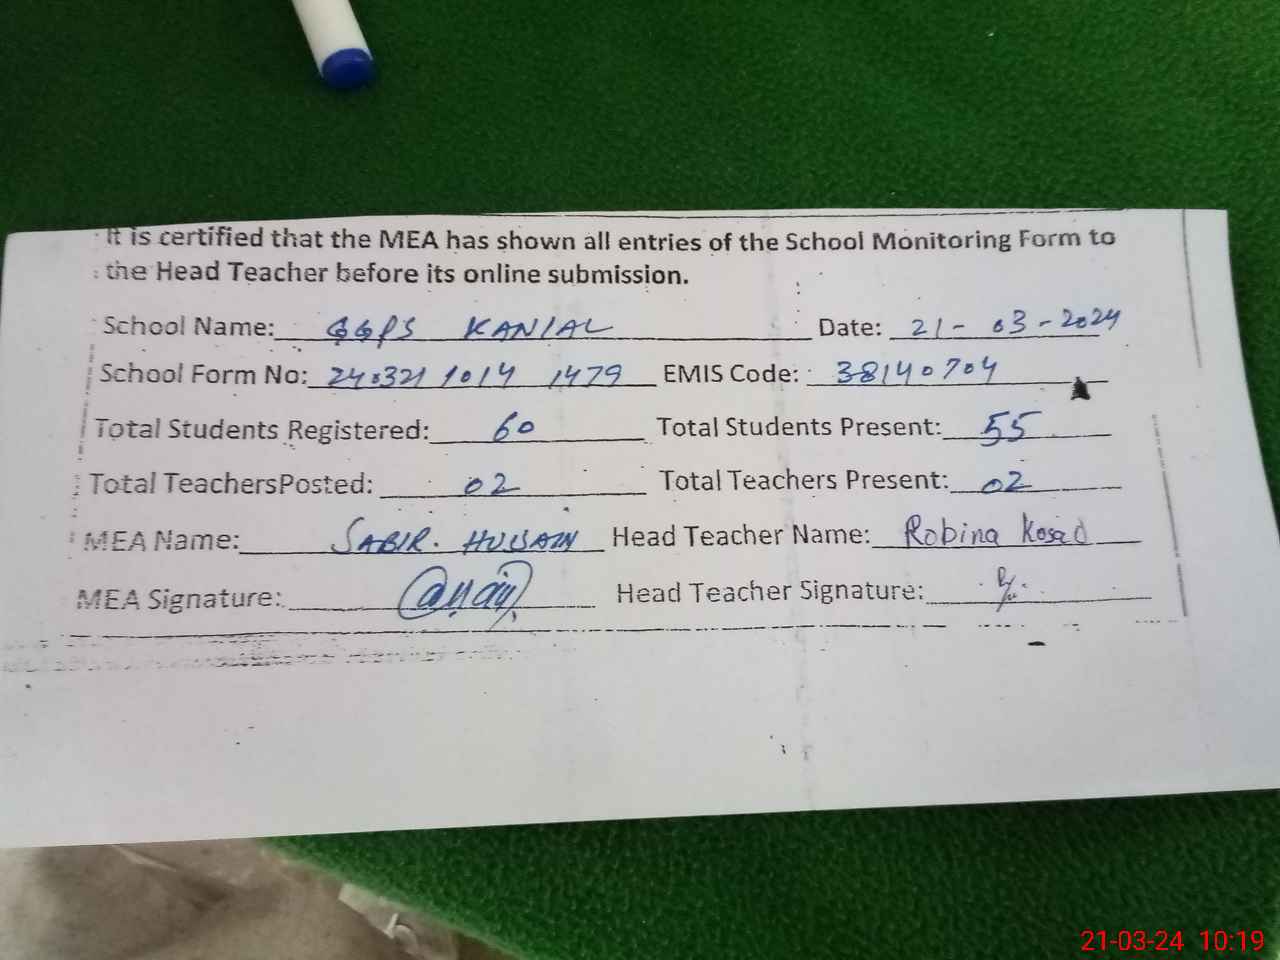 It is certified that the MEA has shown all entries of the School Monitoring Form to
the Head Teacher before its online submission.
School Name: GGPS KANIAL Date: 21-03-2024
School Form No: 240321 1014 1479 EMIS Code: 38140704
Total Students Registered: 60 Total Students Present: 55
Total TeachersPosted: 02 Total Teachers Present: 02
MEA Name: SABIR. HUSSAIN Head Teacher Name: Robina
MEA Signature: Head Teacher Signature:
21-03-24 10:19